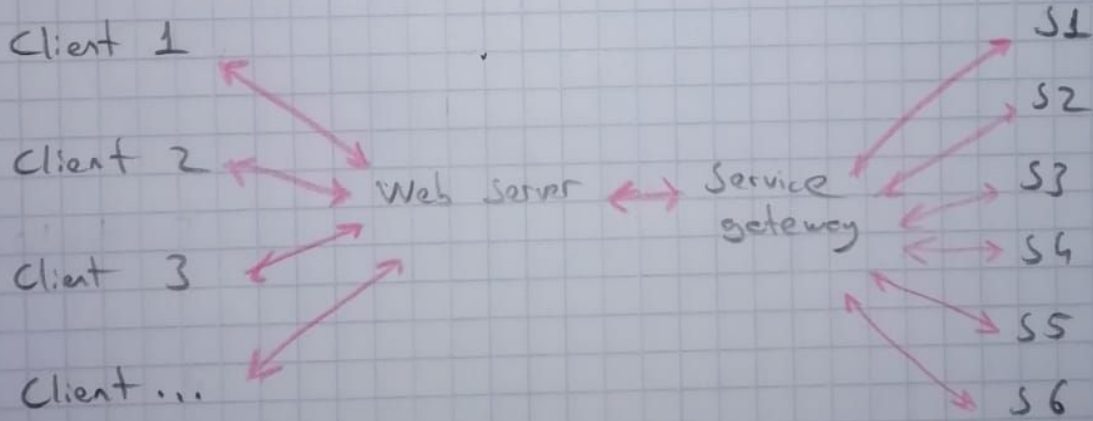 Client 1
Client 2
Client 3
Client ...
Web Server
Service
gateway
S1
S2
S3
S4
S5
S6